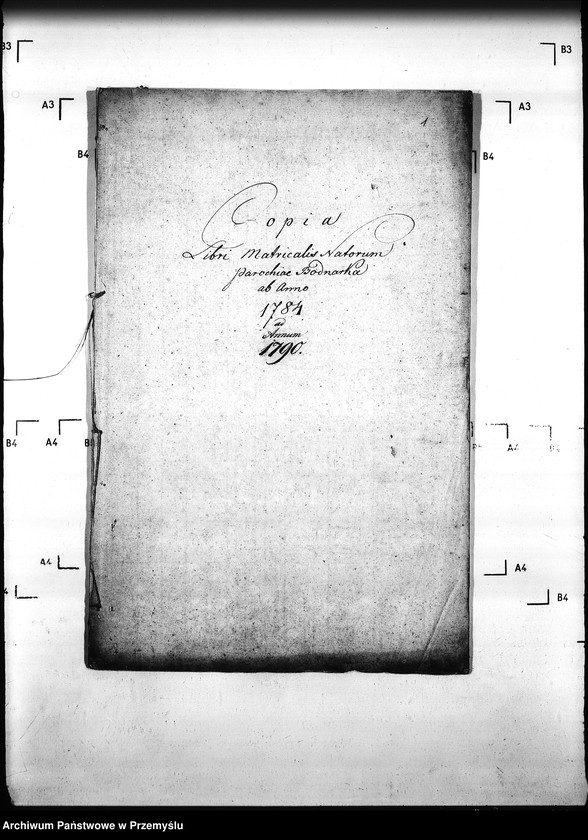 B3
B3
A3
A3
B4
B4
1
Copia
Libri Matricalis Natorum
Parochiae Bodnarka
ab Anno
1784
ad
Annum
1790.
B4
A4
B5
A4
B4
A4
A4
B4
Archiwum Państwowe w Przemyślu